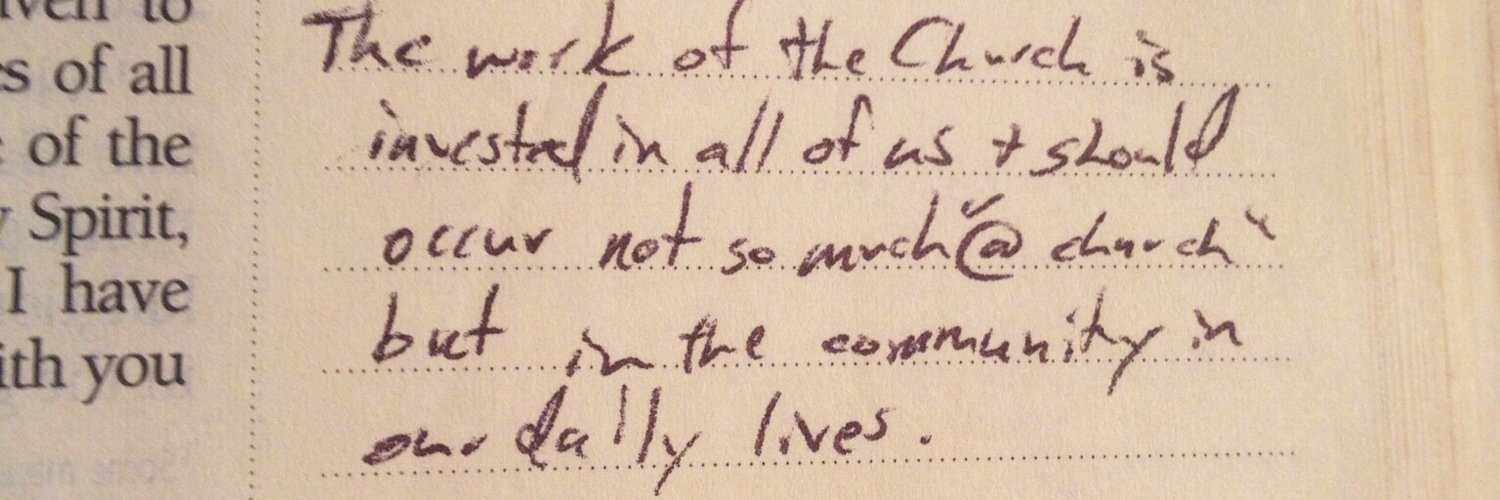 iven to
es of all
of the
Spirit,
I have
ith you
The work of the Church is
invested in all of us + should
occur not so much "@ church"
but in the community in
our daily lives.